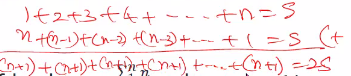 1+2+3+4+ - - - - +n=S
n+(n-1)+(n-2)+(n-3)+ - - - + 1 = S (+
(n+1) + (n+1) + (n+1) + (n+1) + - - - + (n+1) = 2S